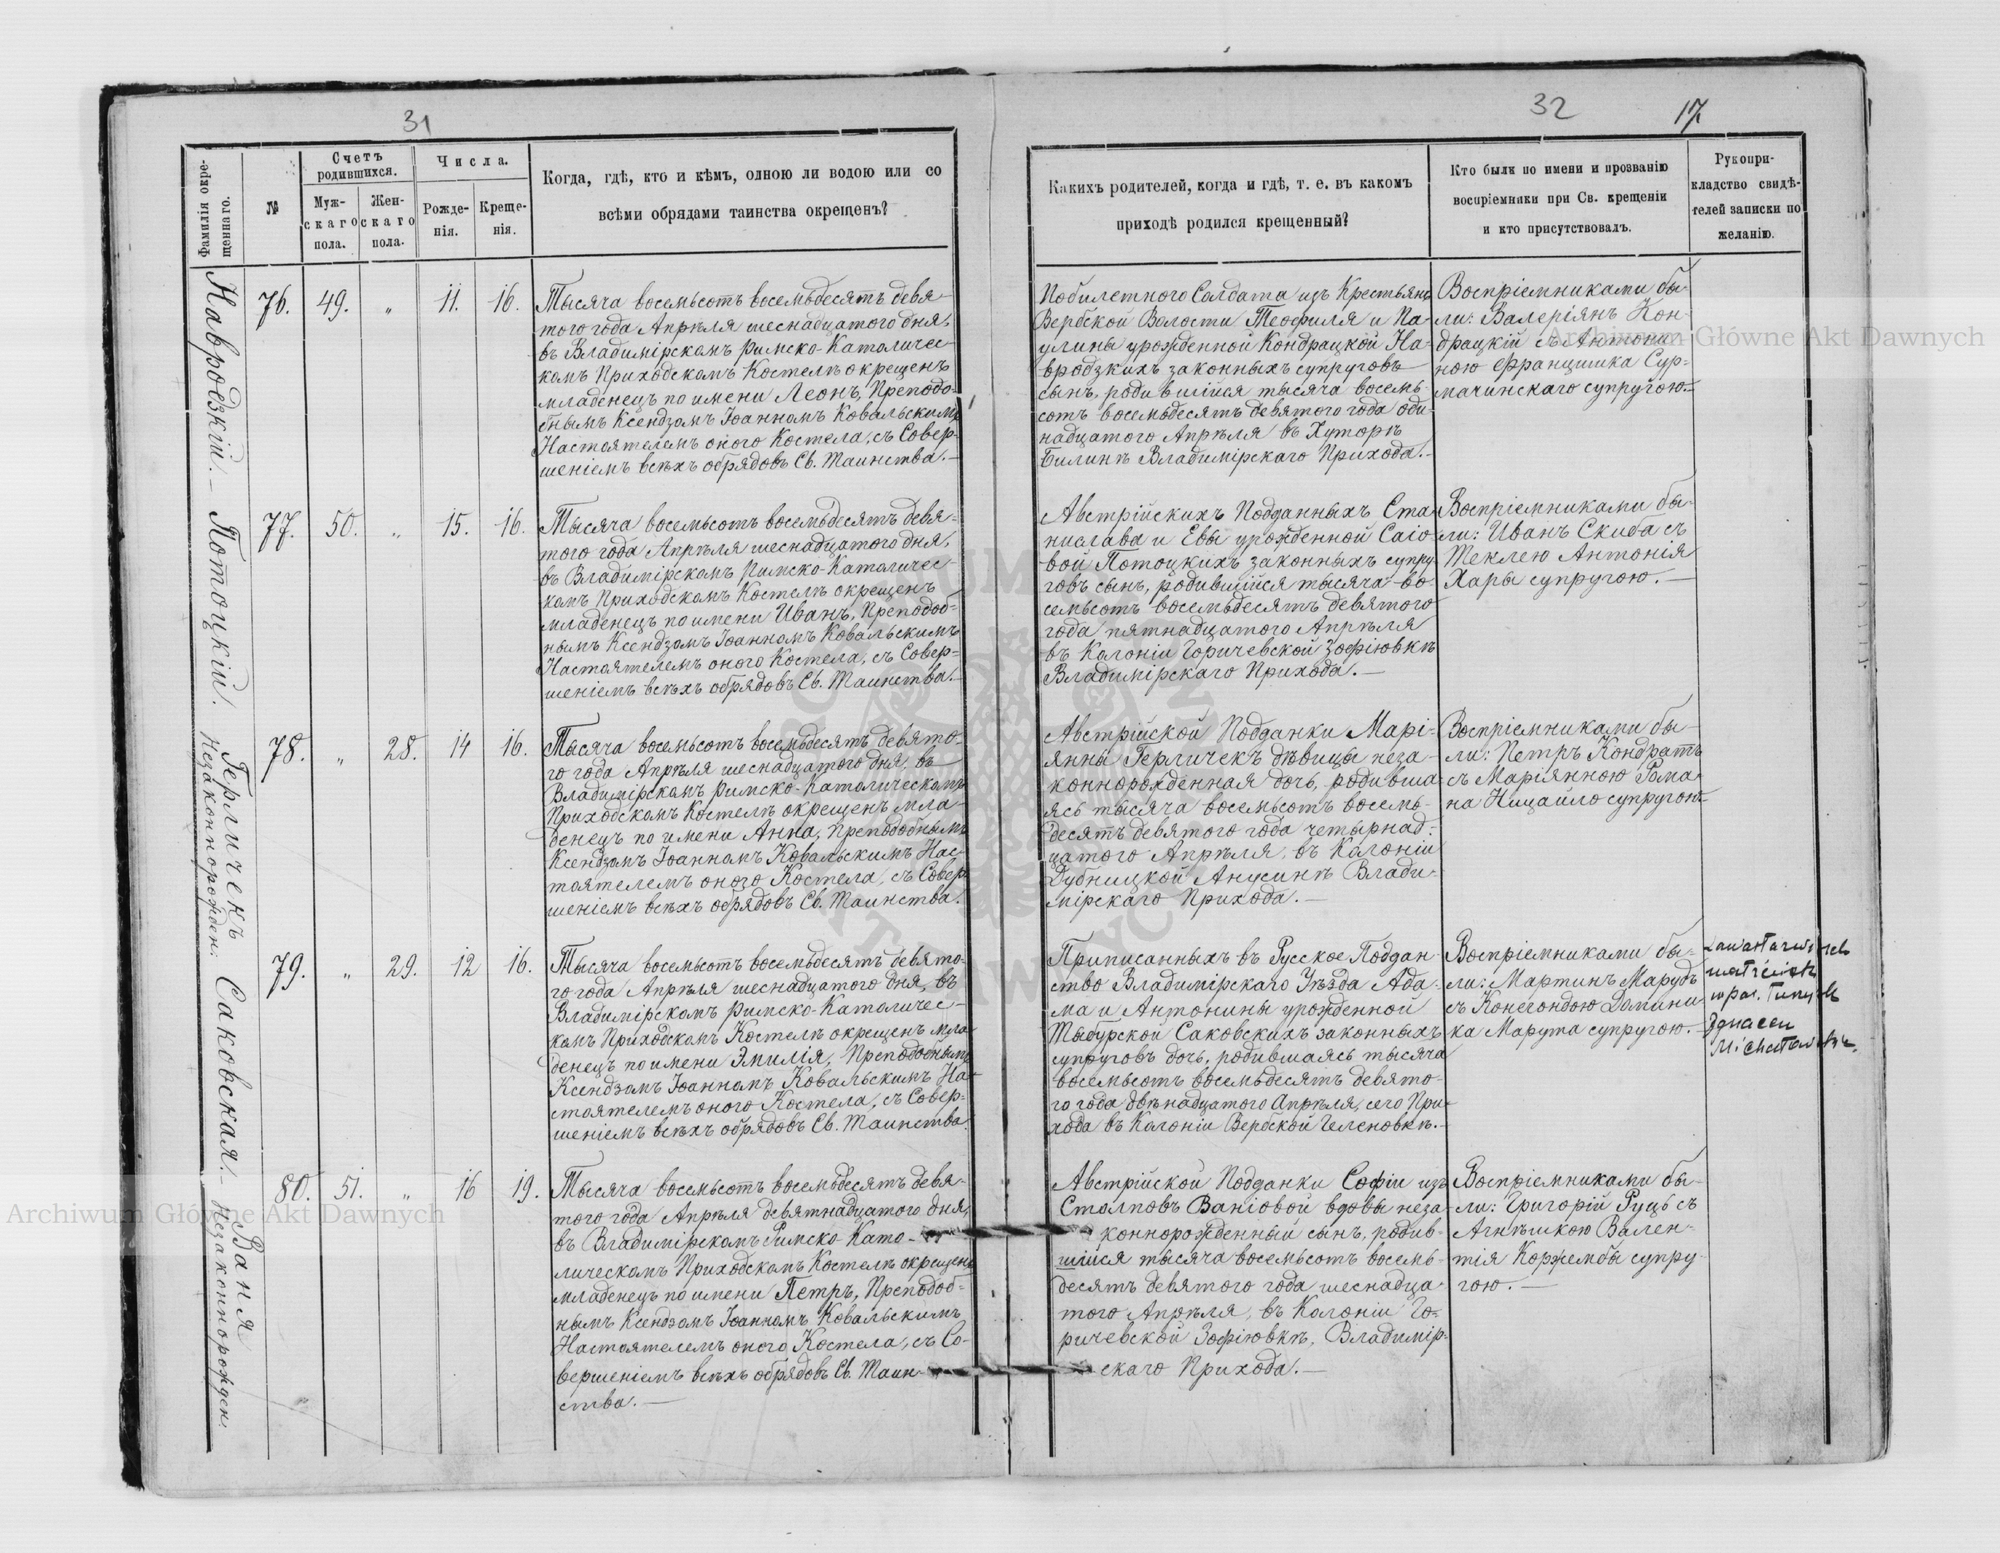 31
Фамилія окре-
щеннаго.
№
Счетъ
родившихся.
Муж-
скаго
пола.
Жен-
скаго
пола.
Числа.
Рожде-
нія.
Креще-
нія.
Когда, гдѣ, кто и кѣмъ, одною ли водою или со
всѣми обрядами таинства окрещенъ?
Навродзкій. —
76.
49.
„
11.
16.
Тысяча восемьсотъ восемьдесятъ девя-
того года Апрѣля шеснадцатого дня,
въ Владимірскомъ Римско-Католичес-
комъ Приходскомъ Костелѣ окрещенъ
младенецъ по имени Леонъ, Преподо-
бнымъ Ксендзомъ Іоанномъ Ковальскимъ
Настоятелемъ оного Костела, съ Совер-
шеніемъ всѣхъ обрядовъ Св. Таинства. —
Потоцкій.
77.
50.
„
15.
16.
Тысяча восемьсотъ восемьдесятъ девя-
того года Апрѣля шеснадцатого дня,
въ Владимірскомъ Римско-Католичес-
комъ Приходскомъ Костелѣ окрещенъ
младенецъ по имени Иванъ, Преподоб-
нымъ Ксендзомъ Іоанномъ Ковальскимъ
Настоятелемъ оного Костела, съ Совер-
шеніемъ всѣхъ обрядовъ Св. Таинства. —
Герличекъ
Незаконнорожден.
78.
„
28.
14
16.
Тысяча восемьсотъ восемьдесятъ девято-
го года Апрѣля шеснадцатого дня, въ
Владимірскомъ Римско-Католическомъ
Приходскомъ Костелѣ окрещенъ мла-
денецъ по имени Анна, Преподобнымъ
Ксендзомъ Іоанномъ Ковальскимъ Нас-
тоятелемъ оного Костела, съ Совер-
шеніемъ всѣхъ обрядовъ Св. Таинства.
Саковская. —
79.
„
29.
12
16.
Тысяча восемьсотъ восемьдесятъ девято-
го года Апрѣля шеснадцатого дня, въ
Владимірскомъ Римско-Католичес-
комъ Приходскомъ Костелѣ окрещенъ мла-
денецъ по имени Эмилія, Преподобнымъ
Ксендзомъ Іоанномъ Ковальскимъ На-
стоятелемъ оного Костела, съ Совер-
шеніемъ всѣхъ обрядовъ Св. Таинства.
Ваня
Незаконнорожден.
80.
51.
„
16
19.
Тысяча восемьсотъ восемьдесятъ девя-
того года Апрѣля девятнадцатого дня,
въ Владимірскомъ Римско-Като-
лическомъ Приходскомъ Костелѣ окрещенъ
младенецъ по имени Петръ, Преподоб-
нымъ Ксендзомъ Іоанномъ Ковальскимъ
Настоятелемъ оного Костела, съ Со-
вершеніемъ всѣхъ обрядовъ Св. Таин-
ства. —
32
17
Какихъ родителей, когда и гдѣ, т. е. въ какомъ
приходѣ родился крещенный?
Кто были по имени и прозванію
воспріемники при Св. крещеніи
и кто присутствовалъ.
Рукопри-
кладство свидѣ-
телей записки по
желанію.
Побилетного Солдата изъ Крестьянъ
Вербской Волости Теофиля и Па-
улины урожденной Кондрацкой На-
вродзкихъ законныхъ супруговъ
сынъ, родившійся тысяча восемь-
сотъ восемьдесятъ девятого года оди-
надцатого Апрѣля въ Хуторѣ
Билинѣ Владимірскаго Прихода. —
Воспріемниками бы-
ли: Валеріянъ Кон-
драцкій съ Антони-
ною Францишка Сур-
мачинскаго супругою. —
Австрійскихъ Подданныхъ Ста-
нислава и Евы урожденной Саіо
вой Потоцкихъ законныхъ супру-
говъ сынъ, родившійся тысяча во-
семьсотъ восемьдесятъ девятого
года пятнадцатого Апрѣля
въ Колоніи Горичевской Зофіювкѣ
Владимірскаго Прихода. —
Воспріемниками бы-
ли: Иванъ Скиба съ
Теклею Антонія
Хары супругою. —
Австрійской Подданки Марі-
янны Герличекъ дѣвицы неза-
коннорожденная дочь, родивша-
ясь тысяча восемьсотъ восемь-
десятъ девятого года четырнад-
цатого Апрѣля, въ Колоніи
Дубницкой Анусинѣ Влади-
мірскаго Прихода. —
Воспріемниками бы-
ли: Петръ Кондратъ
съ Маріянною Рома-
на Ницайло супругою —
Приписанныхъ въ Русское Поддан-
ство Владимірскаго Уѣзда Ада-
ма и Антонины урожденной
Тыбурской Саковскихъ законныхъ
супруговъ дочь, родившаясь тысяча
восемьсотъ восемьдесятъ девято-
го года двѣнадцатого Апрѣля, сего При-
хода въ Колоніи Вербской Геленовкѣ. —
Воспріемниками бы-
ли: Мартинъ Марудъ
съ Конегондою Домини-
ка Марута супругою. —
Австрійской Подданки Софіи изъ
Столповъ Ваніовой вдовы неза-
коннорожденный сынъ, родив-
шійся тысяча восемьсотъ восемь-
десятъ девятого года шеснадца-
того Апрѣля, въ Колоніи Го-
ричевской Зофіювкѣ, Владимір-
скаго Прихода. —
Воспріемниками бы-
ли: Григорій Руцъ съ
Агнѣшкою Вален-
тія Коржембы супру-
гою. —
Archiwum Główne Akt Dawnych
Archiwum Główne Akt Dawnych